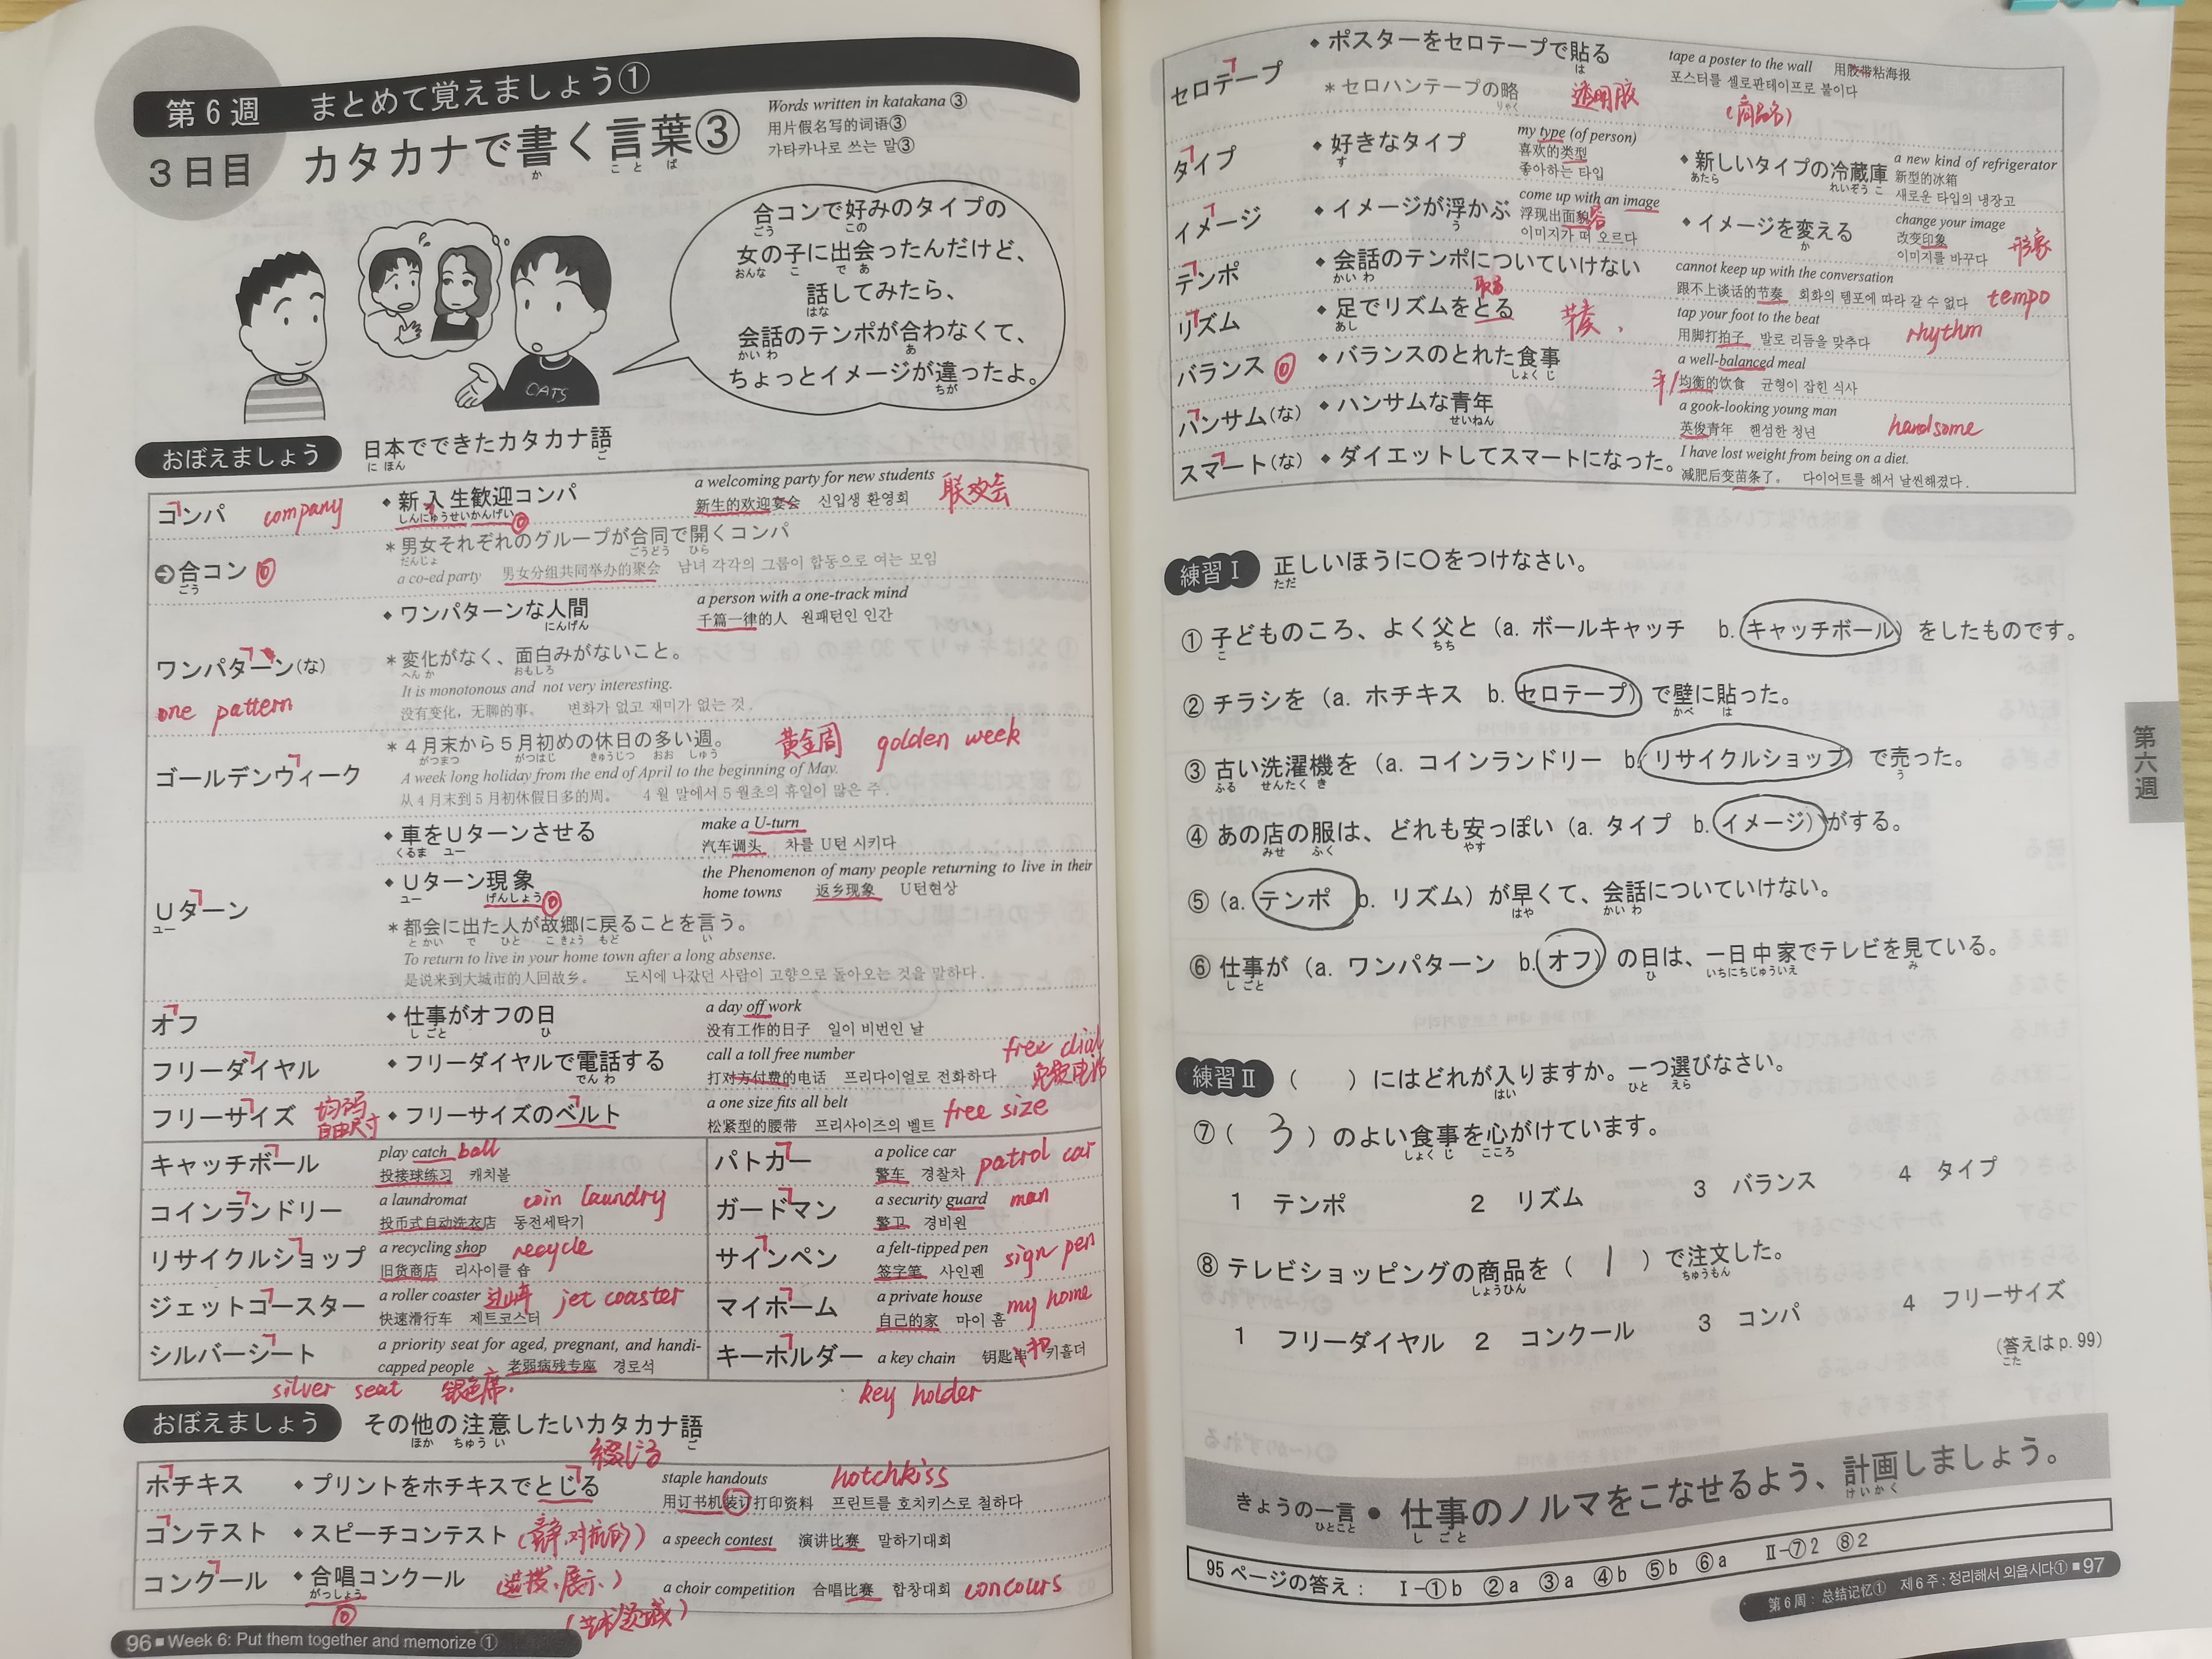 第6週 まとめて覚えましょう①
3日目 カタカナで書く言葉③
か ことば
Words written in katakana ③
用片假名写的词语③
가타카나로 쓰는 말③
合コンで好みのタイプの
ごう この
女の子に出会ったんだけど、
おんな こ で あ
話してみたら、
はな
会話のテンポが合わなくて、
かい わ あ
ちょっとイメージが違ったよ。
ちが
CATS
おぼえましょう 日本でできたカタカナ語
に ほん ご
コンパ company
◆新入生歓迎コンパ
しんにゅうせいかんげい
a welcoming party for new students
新生的欢迎宴会 신입생 환영회 联欢会
合コン
ごう
＊男女それぞれのグループが合同で開くコンパ
だんじょ ごうどう ひら
a co-ed party 男女分组共同举办的聚会 남녀 각각의 그룹이 합동으로 여는 모임
ワンパターン(な)
one pattern
◆ワンパターンな人間
にんげん
a person with a one-track mind
千篇一律的人 원패턴인 인간
＊変化がなく、面白みがないこと。
へん か おもしろ
It is monotonous and not very interesting.
没有变化，无聊的事。 변화가 없고 재미가 없는 것.
ゴールデンウィーク
＊４月末から５月初めの休日の多い週。 黄金周 golden week
がつまつ がつはじ きゅうじつ おお しゅう
A week long holiday from the end of April to the beginning of May.
从4月末到5月初休假日多的周。 4월 말에서 5월초의 휴일이 많은 주.
Uターン
ユー
◆車をUターンさせる
くるま ユー
make a U-turn
汽车调头 차를 U턴 시키다
◆Uターン現象
ユー げんしょう
the Phenomenon of many people returning to live in their
home towns 返乡现象 U턴현상
＊都会に出た人が故郷に戻ることを言う。
と かい で ひと こ きょう もど い
To return to live in your home town after a long absense.
是说来到大城市的人回故乡。 도시에 나갔던 사람이 고향으로 돌아오는 것을 말하다.
オフ
◆仕事がオフの日
し ごと ひ
a day off work
没有工作的日子 일이 비번인 날
フリーダイヤル
◆フリーダイヤルで電話する
でん わ
call a toll free number
打对方付费的电话 프리다이얼로 전화하다
free dial
免费电话
フリーサイズ 均码
自由尺寸
◆フリーサイズのベルト
a one size fits all belt
松紧型的腰带 프리사이즈의 벨트 free size
キャッチボール
play catch ball
投接球练习 캐치볼
パトカー
a police car
警车 경찰차 patrol car
コインランドリー
a laundromat coin laundry
投币式自动洗衣店 동전세탁기
ガードマン
a security guard man
警卫 경비원
リサイクルショップ
a recycling shop recycle
旧货商店 리사이클 숍
サインペン
a felt-tipped pen
签字笔 사인펜 sign pen
ジェットコースター
a roller coaster 过山车 jet coaster
快速滑行车 제트코스터
マイホーム
a private house
自己的家 마이 홈 my home
シルバーシート
a priority seat for aged, pregnant, and handi-
capped people 老弱病残专座 경로석
silver seat 银色席.
キーホルダー a key chain 钥匙串 扣 키홀더
key holder
おぼえましょう その他の注意したいカタカナ語
ほか ちゅう い ご
綴じる
ホチキス ◆プリントをホチキスでとじる
staple handouts hotchkiss
用订书机装订打印资料 프린트를 호치키스로 철하다
コンテスト ◆スピーチコンテスト (竞争.对抗的) a speech contest 演讲比赛 말하기대회
コンクール ◆合唱コンクール (选拔.展示.) a choir competition 合唱比赛 합창대회 concours
がっしょう
(艺术领域)
96 ■ Week 6: Put them together and memorize ①
セロテープ
◆ポスターをセロテープで貼る
は
tape a poster to the wall 用胶带粘海报
포스터를 셀로판테이프로 붙이다
＊セロハンテープの略 透明胶 (商品名)
りゃく
タイプ
◆好きなタイプ
す
my type (of person)
喜欢的类型
좋아하는 타입
◆新しいタイプの冷蔵庫
あたら れいぞう こ
a new kind of refrigerator
新型的冰箱
새로운 타입의 냉장고
イメージ
◆イメージが浮かぶ
う
come up with an image
浮现出面貌 容
이미지가 떠 오르다
◆イメージを変える
か
change your image
改变印象 形象
이미지를 바꾸다
テンポ
◆会話のテンポについていけない
かい わ
cannot keep up with the conversation
跟不上谈话的节奏 회화의 템포에 따라 갈 수 없다 tempo
リズム
取る
◆足でリズムをとる 节奏.
あし
tap your foot to the beat
用脚打拍子 발로 리듬을 맞추다 rhythm
バランス
◆バランスのとれた食事
しょく じ
a well-balanced meal
均衡的饮食 균형이 잡힌 식사
ハンサム(な)
◆ハンサムな青年
せいねん
a gook-looking young man
英俊青年 핸섬한 청년 handsome
スマート(な)
◆ダイエットしてスマートになった。
I have lost weight from being on a diet.
减肥后变苗条了。 다이어트를 해서 날씬해졌다.
練習Ⅰ 正しいほうに〇をつけなさい。
ただ
① 子どものころ、よく父と（a. ボールキャッチ b. キャッチボール）をしたものです。
こ ちち
② チラシを（a. ホチキス b. セロテープ）で壁に貼った。
かべ は
③ 古い洗濯機を（a. コインランドリー b. リサイクルショップ）で売った。
ふる せんたく き う
④ あの店の服は、どれも安っぽい（a. タイプ b. イメージ）がする。
みせ ふく やす
⑤（a. テンポ b. リズム）が早くて、会話についていけない。
はや かい わ
⑥ 仕事が（a. ワンパターン b. オフ）の日は、一日中家でテレビを見ている。
し ごと ひ いちにちじゅういえ み
練習Ⅱ （ ）にはどれが入りますか。一つ選びなさい。
はい ひと えら
⑦（ 3 ）のよい食事を心がけています。
しょく じ こころ
1 テンポ 2 リズム 3 バランス 4 タイプ
⑧ テレビショッピングの商品を（ 1 ）で注文した。
しょうひん ちゅうもん
1 フリーダイヤル 2 コンクール 3 コンパ 4 フリーサイズ
(答えは p. 99)
こた
第六週
きょうの一言 ● 仕事のノルマをこなせるよう、計画しましょう。
ひとこと し ごと けいかく
95 ページの答え： Ⅰ-①b ②a ③a ④b ⑤b ⑥a Ⅱ-⑦2 ⑧2
第6周：总结记忆① 제6주 : 정리해서 외웁시다① ■ 97